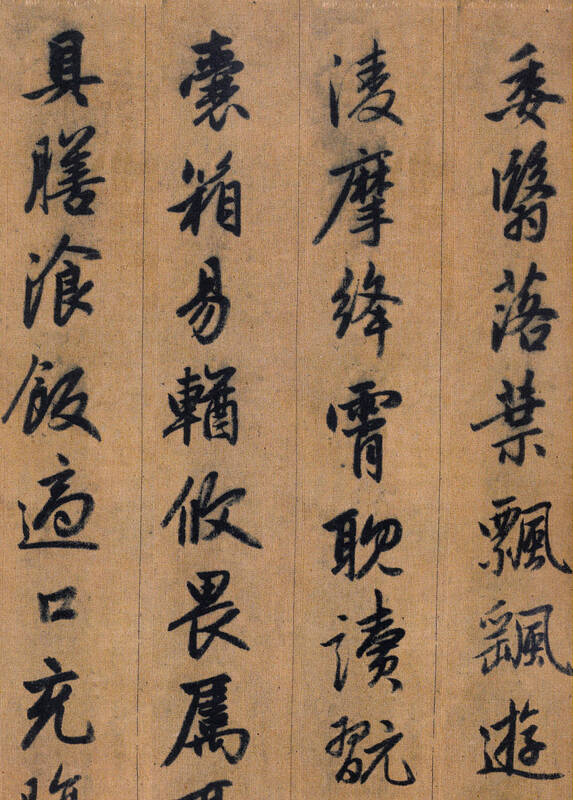 委翳落葉飄颻遊
淩摩絳霄耽讀翫
囊箱易輶攸畏属耳
具膳飡飯適口充腸